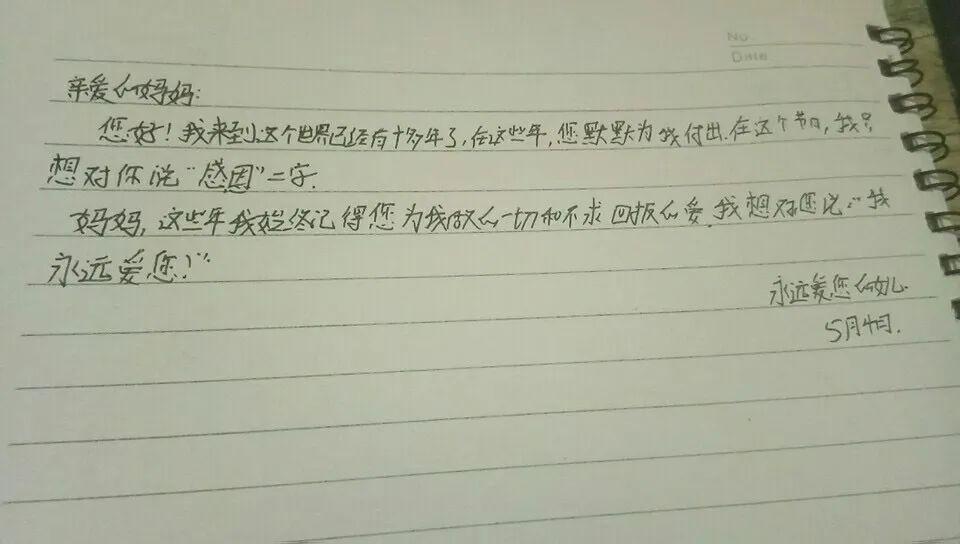 No.
Date
亲爱的妈妈:
您好!我来到这个世界已经有十多年了,在这些年,您默默为我付出.在这个节日,我只
想对你说“感因”二字.
妈妈,这些年我始终记得您为我做的一切和不求回报的爱.我想对您说:“我
永远爱您!”
永远爱您的女儿.
5月4日.